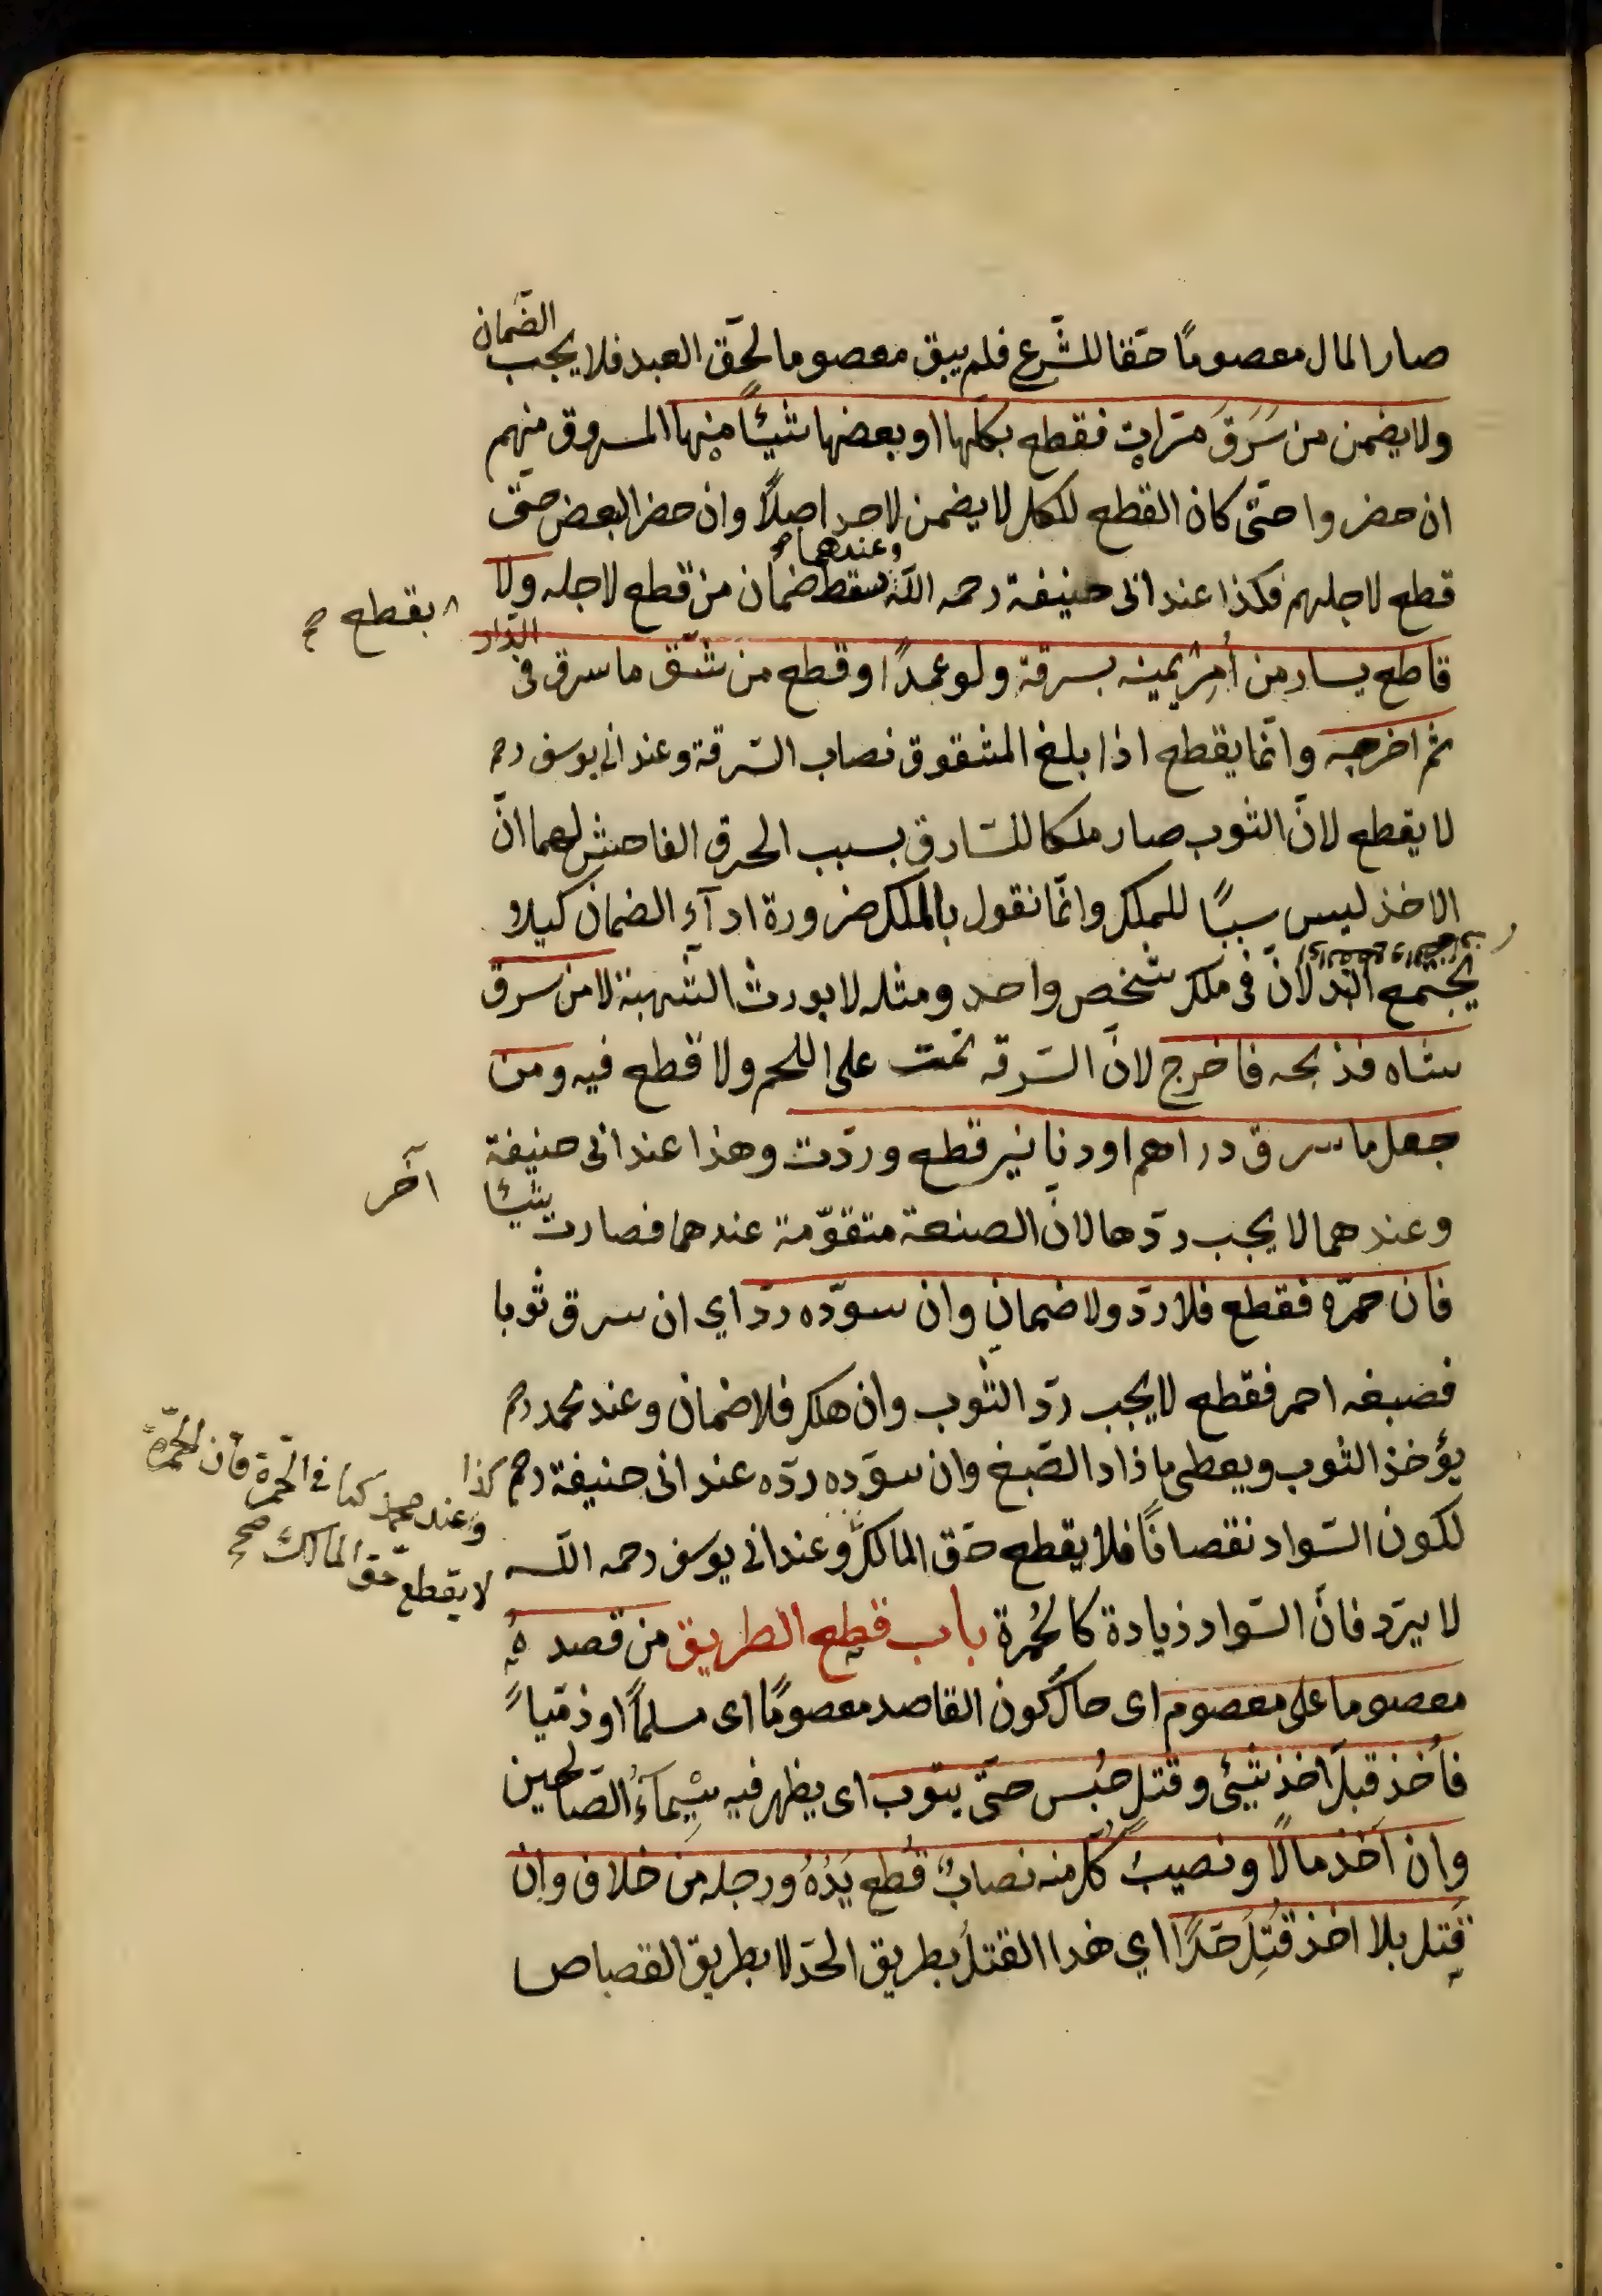 صار المال معصومًا حقا للشّرع فلم يبق معصوما لحقّ العبد فلا يجب الضّمان
ولا يضمن من سَرَقَ مرّات فقطع بكلّها او بعضها شيئًا منها المسروق منهم
ان حضروا حتّى كان القطع للكل لا يضمن لاحد اصلاً وان حضر البعض حتّى
وعندهما
قطع لاجلهم فكذا عند ابى حنيفة رحمه اللّه سقط ضمان من قطع لاجله ولا
يقطع صح
قاطع يسار من اُمِرَ بيمينه بسرقة ولو عمدًا او قطع من شقّ ما سرق فى الدّار
ثم اخرجه وانّما يقطع اذا بلغ المشقوق نصاب السّرقة وعند ابى يوسف رحمه
لا يقطع لانّ الثوب صار ملكا للسّارق بسبب الخرق الفاحش لهما انّ
الاخذ ليس سببًا للملك وانّما نقول بالملك ضرورة ادآء الضمان كيلا
يجتمع البدلان فى ملك شخص واحد ومثله لا يورث الشّبهة لا من سرق
شاه فذبحه فاخرج لانّ السّرقه تمّت على اللحم ولا قطع فيه ومن
جعل ما سرق دراهم او دنانير قطع وردّت وهذا عند ابى حنيفة
وعندهما لا يجب ردّها لانّ الصنعة متقوّمة عندهما فصارت شيئًا
آخر
فان حمرّه فقطع فلا ردّ ولا ضمان وان سوّده ردّ اي ان سرق ثوبا
فصبغه احمر فقطع لا يجب ردّ الثوب وان هلك فلا ضمان وعند محمد رحم
يؤخذ الثوب ويعطى ما زاد الصّبغ وان سوّده ردّه عند ابى حنيفة رحم
كذا وعند محمد كما فى الحمرة فان الحمرة
لا يقطع حقّ المالك صح
لكون السّواد نقصانًا فلا يقطع حقّ المالك وعند ابى يوسف رحمه اللّه
لا يردّ فانّ السّواد زيادة كالحُمرة باب قطع الطريق من قصده
معصوما على معصوم اى حال كون القاصد معصومًا اى مسلمًا او ذمّياً
فاُخذ قبل اخذ شيئ وقتل حُبس حتّى يتوب اى يظهر فيه سِيمآءُ الصّالحين
وان اَخذ مالًا ونصيبُ كلّ منه نصابٌ قُطع يَدُهُ ورجله من خلاف وان
قَتل بلا اخذ قُتِلَ حَدًّا اي هذا القتل بطريق الحدّ لا بطريق القصاص